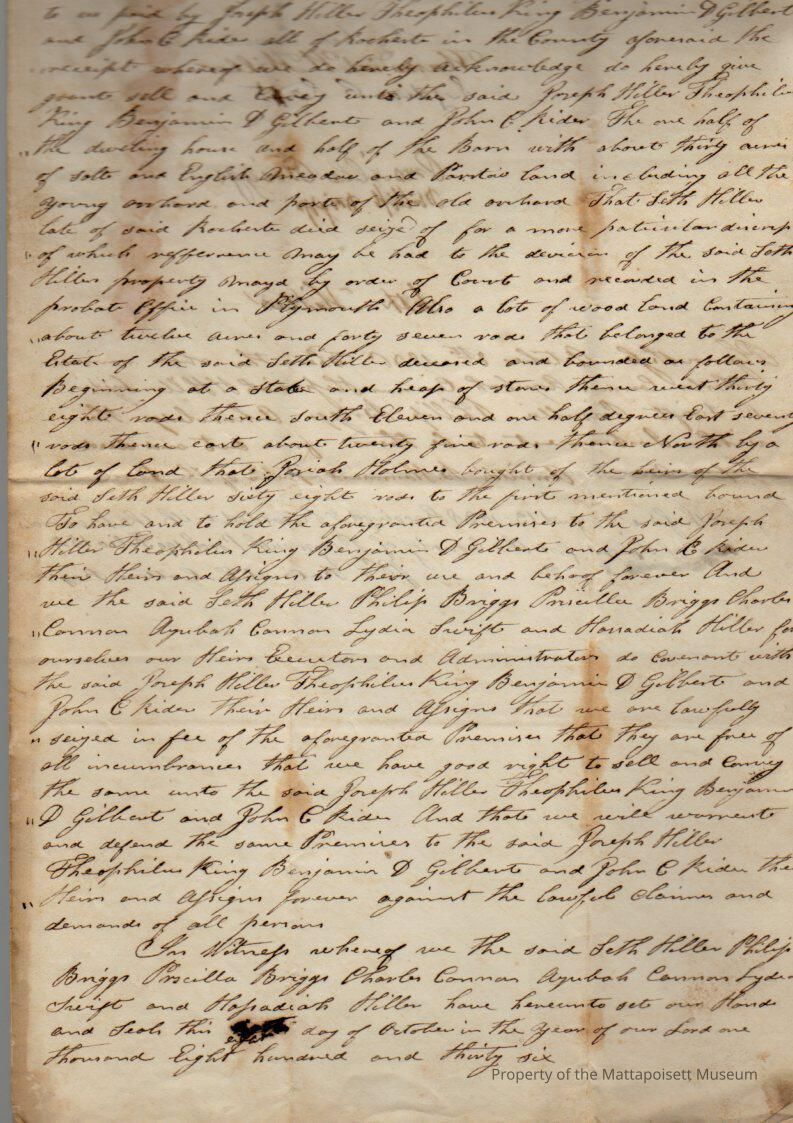 to us paid by Joseph Hiller Theophilus King Benjamin D Gilbert
and John C Rider all of Rochester in the County aforesaid the
receipt whereof we do hereby acknowledge do hereby give
grant sell and Convey unto the said Joseph Hiller Theophilus
King Benjamin D Gilbert and John C Rider The one half of
the dweling house and half of the Barn with about thirty acres
of salt and English meadow and land including all the
young orchard and part of the old orchard That Seth Hiller
late of said Rochester died seizd of for a more paticular discrip
of which refference may be had to the devision of the said Seth
Hillers property mayd by order of Court and recorded in the
probat Office in Plymouth Also a lot of wood land Containing
about twelve acres and forty seven rods that belonged to the
Estate of the said Seth Hiller deceased and bounded as follows
Beginning at a stake and heap of stones thence west thirty
eight rods thence south Eleven and one half degrees East seventy
rods thence east about twenty five rods thence North by a
lot of land that Josiah Holmes bought of the heirs of the
said Seth Hiller sixty eight rods to the first mentioned bound
To have and to hold the aforegranted Premises to the said Joseph
Hiller Theophilus King Benjamin D Gilbert and John C Rider
their Heirs and Assigns to their use and behoof forever And
we the said Seth Hiller Philip Briggs Priscilla Briggs Charles
Cannon Azubah Cannon Lydia Swift and Hassadiah Hiller for
ourselves our Heirs Executors and Administrators do covenant with
the said Joseph Hiller Theophilus King Benjamin D Gilbert and
John C Rider their Heirs and Assigns that we are lawfully
seized in fee of the aforegranted Premises that they are free of
all incumbrances that we have good right to sell and Convey
the same unto the said Joseph Hiller Theophilus King Benjamin
D Gilbert and John C Rider And that we will warrent
and defend the same Premises to the said Joseph Hiller
Theophilus King Benjamin D Gilbert and John C Rider the
Heirs and Assigns forever against the lawful Claimes and
demands of all persons
In Witness whereof we the said Seth Hiller Philip
Briggs Prscilla Briggs Charles Cannon Azubah Cannon Lydia
Swift and Hassadiah Hiller have hereunto set our Hands
and Seals this eight day of October in the year of our Lord one
thousand Eight hundred and thirty six
Property of the Mattapoisett Museum